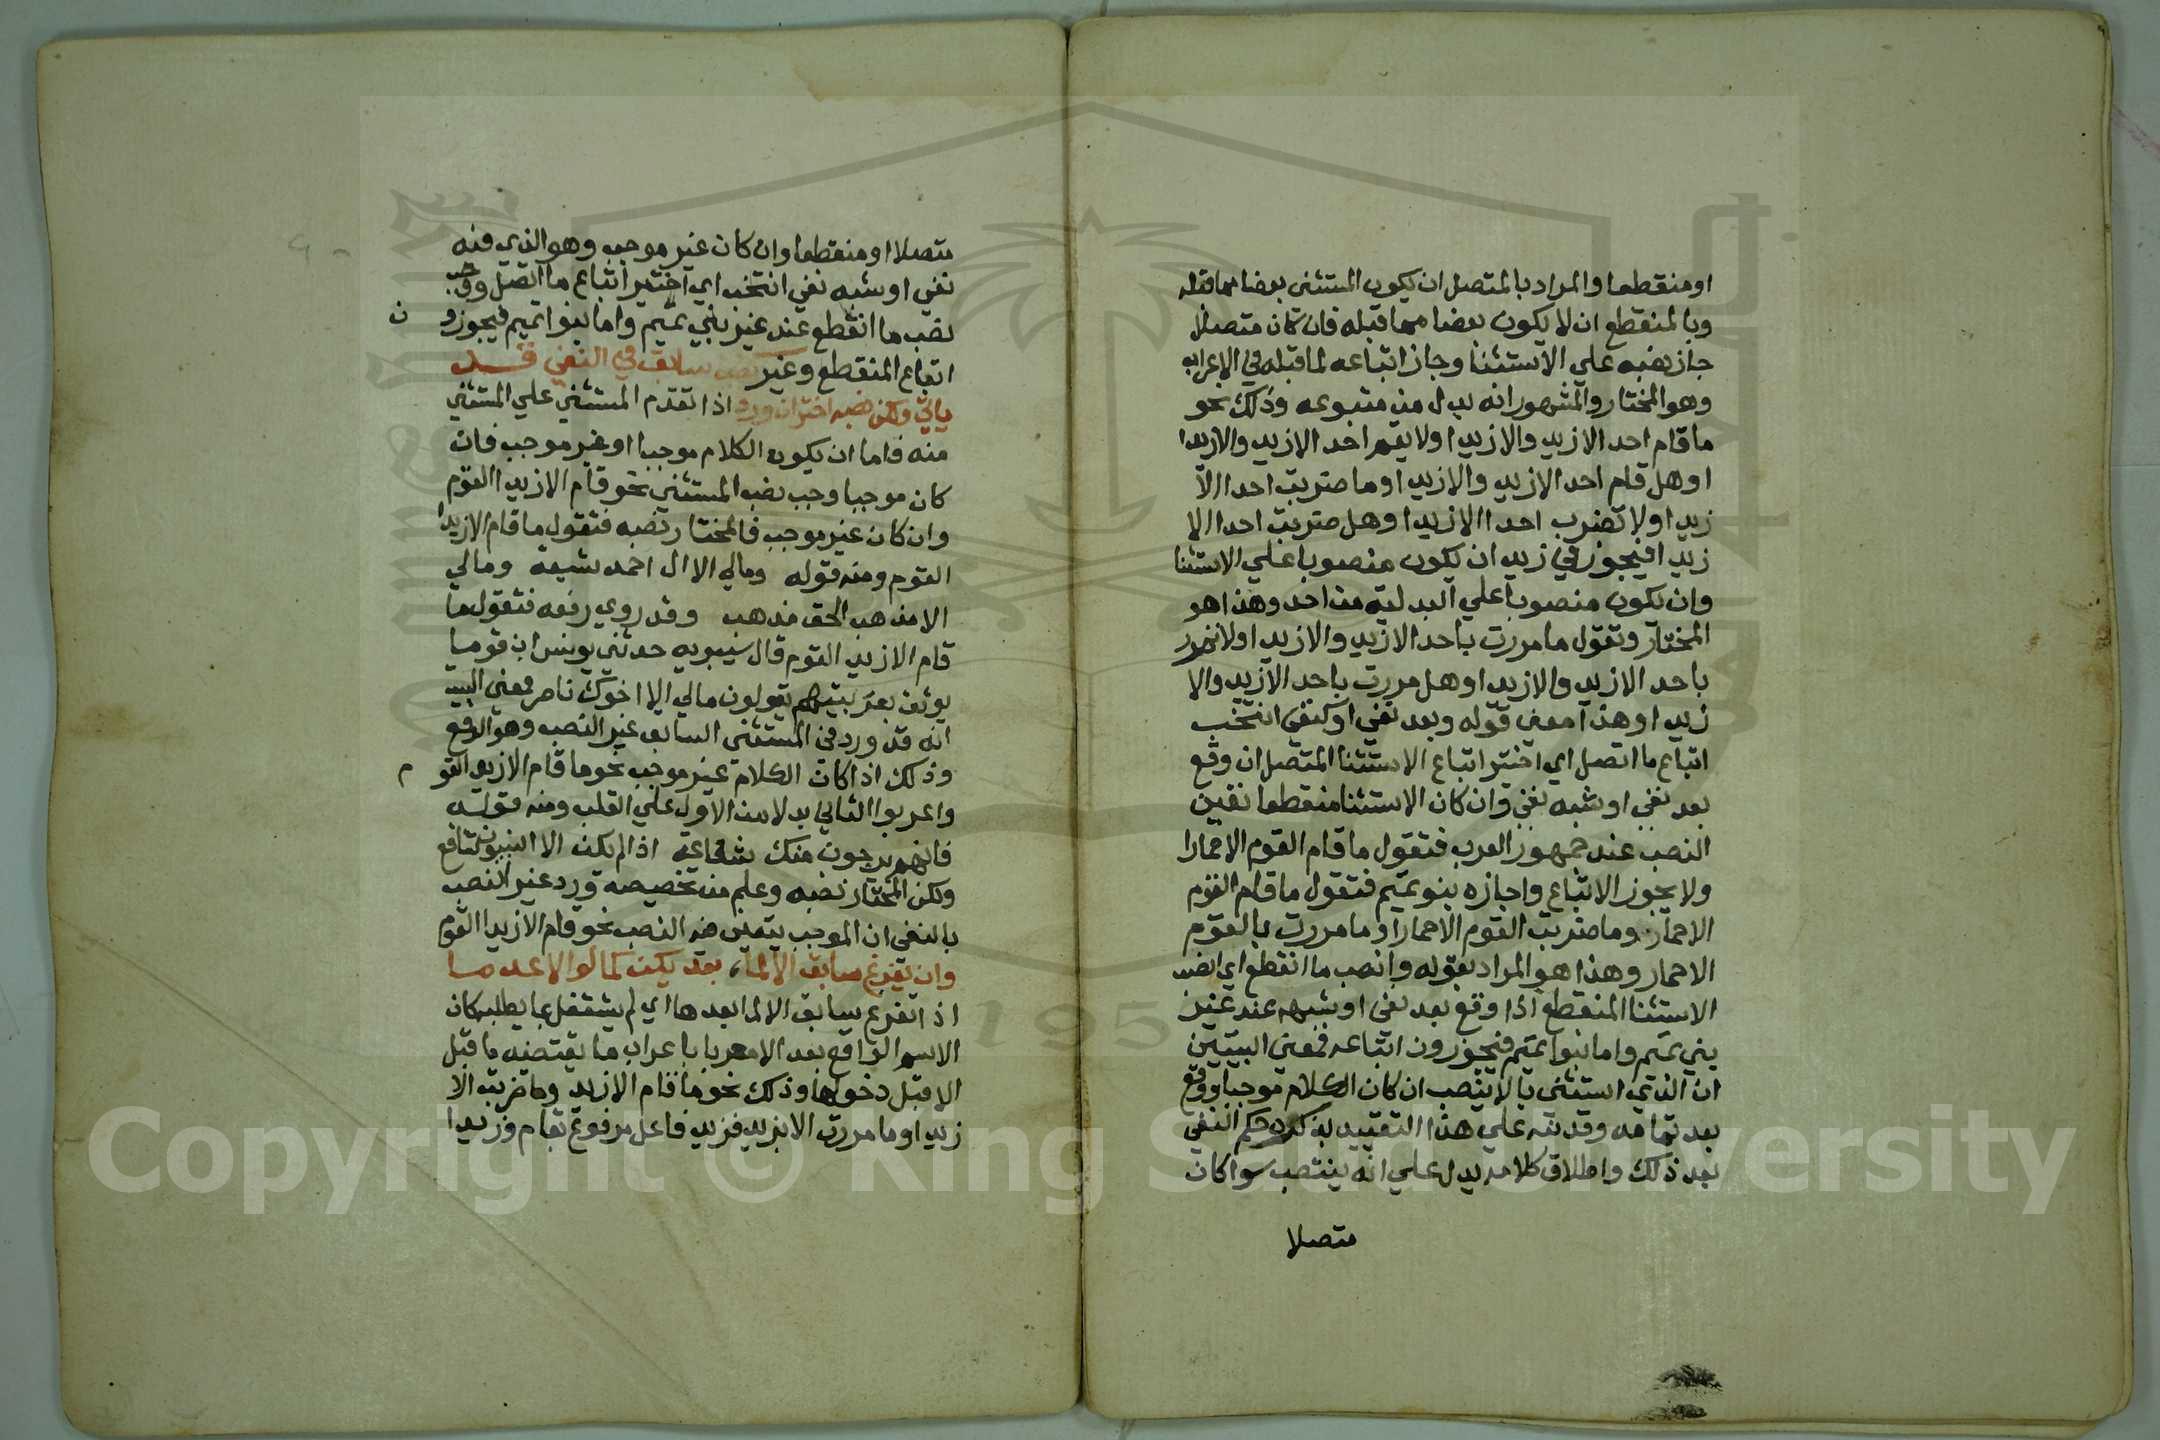 او منقطعا والمراد بالمتصل ان يكون المستثنى بعضا مما قبله
وبالمنقطع ان لا يكون بعضا مما قبله فان كان متصلا
جاز نصبه علي الاستثنا وجاز اتباعه لما قبله في الاعراب
وهو المختار والمشهور انه بدل من متبوعه وذلك نحو
ما قام احد الا زيد والا زيدا ولا يقم احد الا زيد والا زيدا
او هل قام احد الا زيد والا زيدا وما ضربت احدا الا
زيدا ولا تضرب احدا الا زيدا وهل ضربت احدا الا
زيدا فيجوز في زيدا ان يكون منصوبا علي الاستثنا
وان يكون منصوبا علي البدلية من احد وهذا هو
المختار وتقول ما مررت باحد الا زيد والا زيدا ولا تمرر
باحد الا زيد والا زيدا وهل مررت باحد الا زيد والا
زيدا وهذا معني قوله وبعد نفي او كنفي انتخب
اتباع ما اتصل اي اختر اتباع الاستثنا المتصل ان وقع
بعد نفي او شبه نفي وان كان الاستثنا منقطعا تعين
النصب عند جمهور العرب فتقول ما قام القوم الا حمارا
ولا يجوز الاتباع واجازه بنو تميم فتقول ما قام القوم
الا حمار وما ضربت القوم الا حمارا وما مررت بالقوم
الا حمار وهذا هو المراد بقوله وانصب ما انقطع اي انصب
الاستثنا المنقطع اذا وقع بعد نفي او شبهه عند غير
بني تميم واما بنوا تميم فيجوزون اتباعه فمعني البيتين
ان الذي استثني بالا ينتصب ان كان الكلام موجبا ووقع
بعد تمامه وقد نبه علي هذا التقييد بذكره حكم النفي
بعد ذلك واطلاق كلامه يدل علي انه ينتصب سوا كان
متصلا
متصلا او منقطعا وان كان غير موجب وهو الذي فيه
نفي او شبه نفي انتخب اي اختير اتباع ما اتصل ووجب
نصب ما انقطع عند غير بني تميم واما بنوا تميم فيجوزو ن
اتباع المنقطع وغير نصب سابق في النفي قد
ياتي ولكن نصبه اختر ان ورد اذا تقدم المستثني علي المستثني
منه فاما ان يكون الكلام موجبا او غير موجب فان
كان موجبا وجب نصب المستثني نحو قام الا زيدا القوم
وان كان غير موجب فالمختار نصبه فتقول ما قام الا زيدا
القوم ومنه قوله ومالي الا ال احمد شيعة ومالي
الا مذهب الحق مذهب وقد روي رفعه فتقول ما
قام الا زيد القوم قال سيبويه حدثني يونس ان قوما
يوثق بعربيتهم يقولون مالي الا اخوك ناصر فمعني البيت
انه قد ورد في المستثني السابق غير النصب وهو الرفع
وذلك اذا كان الكلام غير موجب نحو ما قام الا زيد القو م
واعربوا الثاني بدلا من الاول علي القلب ومنه قوله
فانهم يرجون منك شفاعة اذا لم يكن الا النبيون شافع
ولكن المختار نصبه وعلم من تخصيصه ورد غير النصب
بالنفي ان الموجب يتعين فيه النصب نحو قام الا زيدا القوم
وان يفرغ سابق الا لما بعد يكن كما لو الا عدما
اذا تفرغ سابق الا لما بعدها اي لم يشتغل بما يطلبه كان
الاسم الواقع بعد الا معربا باعراب ما يقتضيه ما قبل
الا قبل دخولها وذلك نحو ما قام الا زيد وما ضربت الا
زيدا وما مررت الا بزيد فزيد فاعل مرفوع بقام وزيدا
Copyright © King Saud University
195